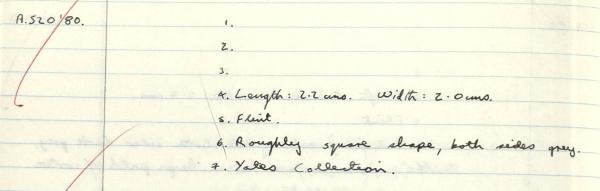 A.520'80.
1.
2.
3.
4. Length: 2.2 cms. Width: 2.0cms.
5. Flint.
6. Roughly square shape, both sides grey.
7. Yates Collection.